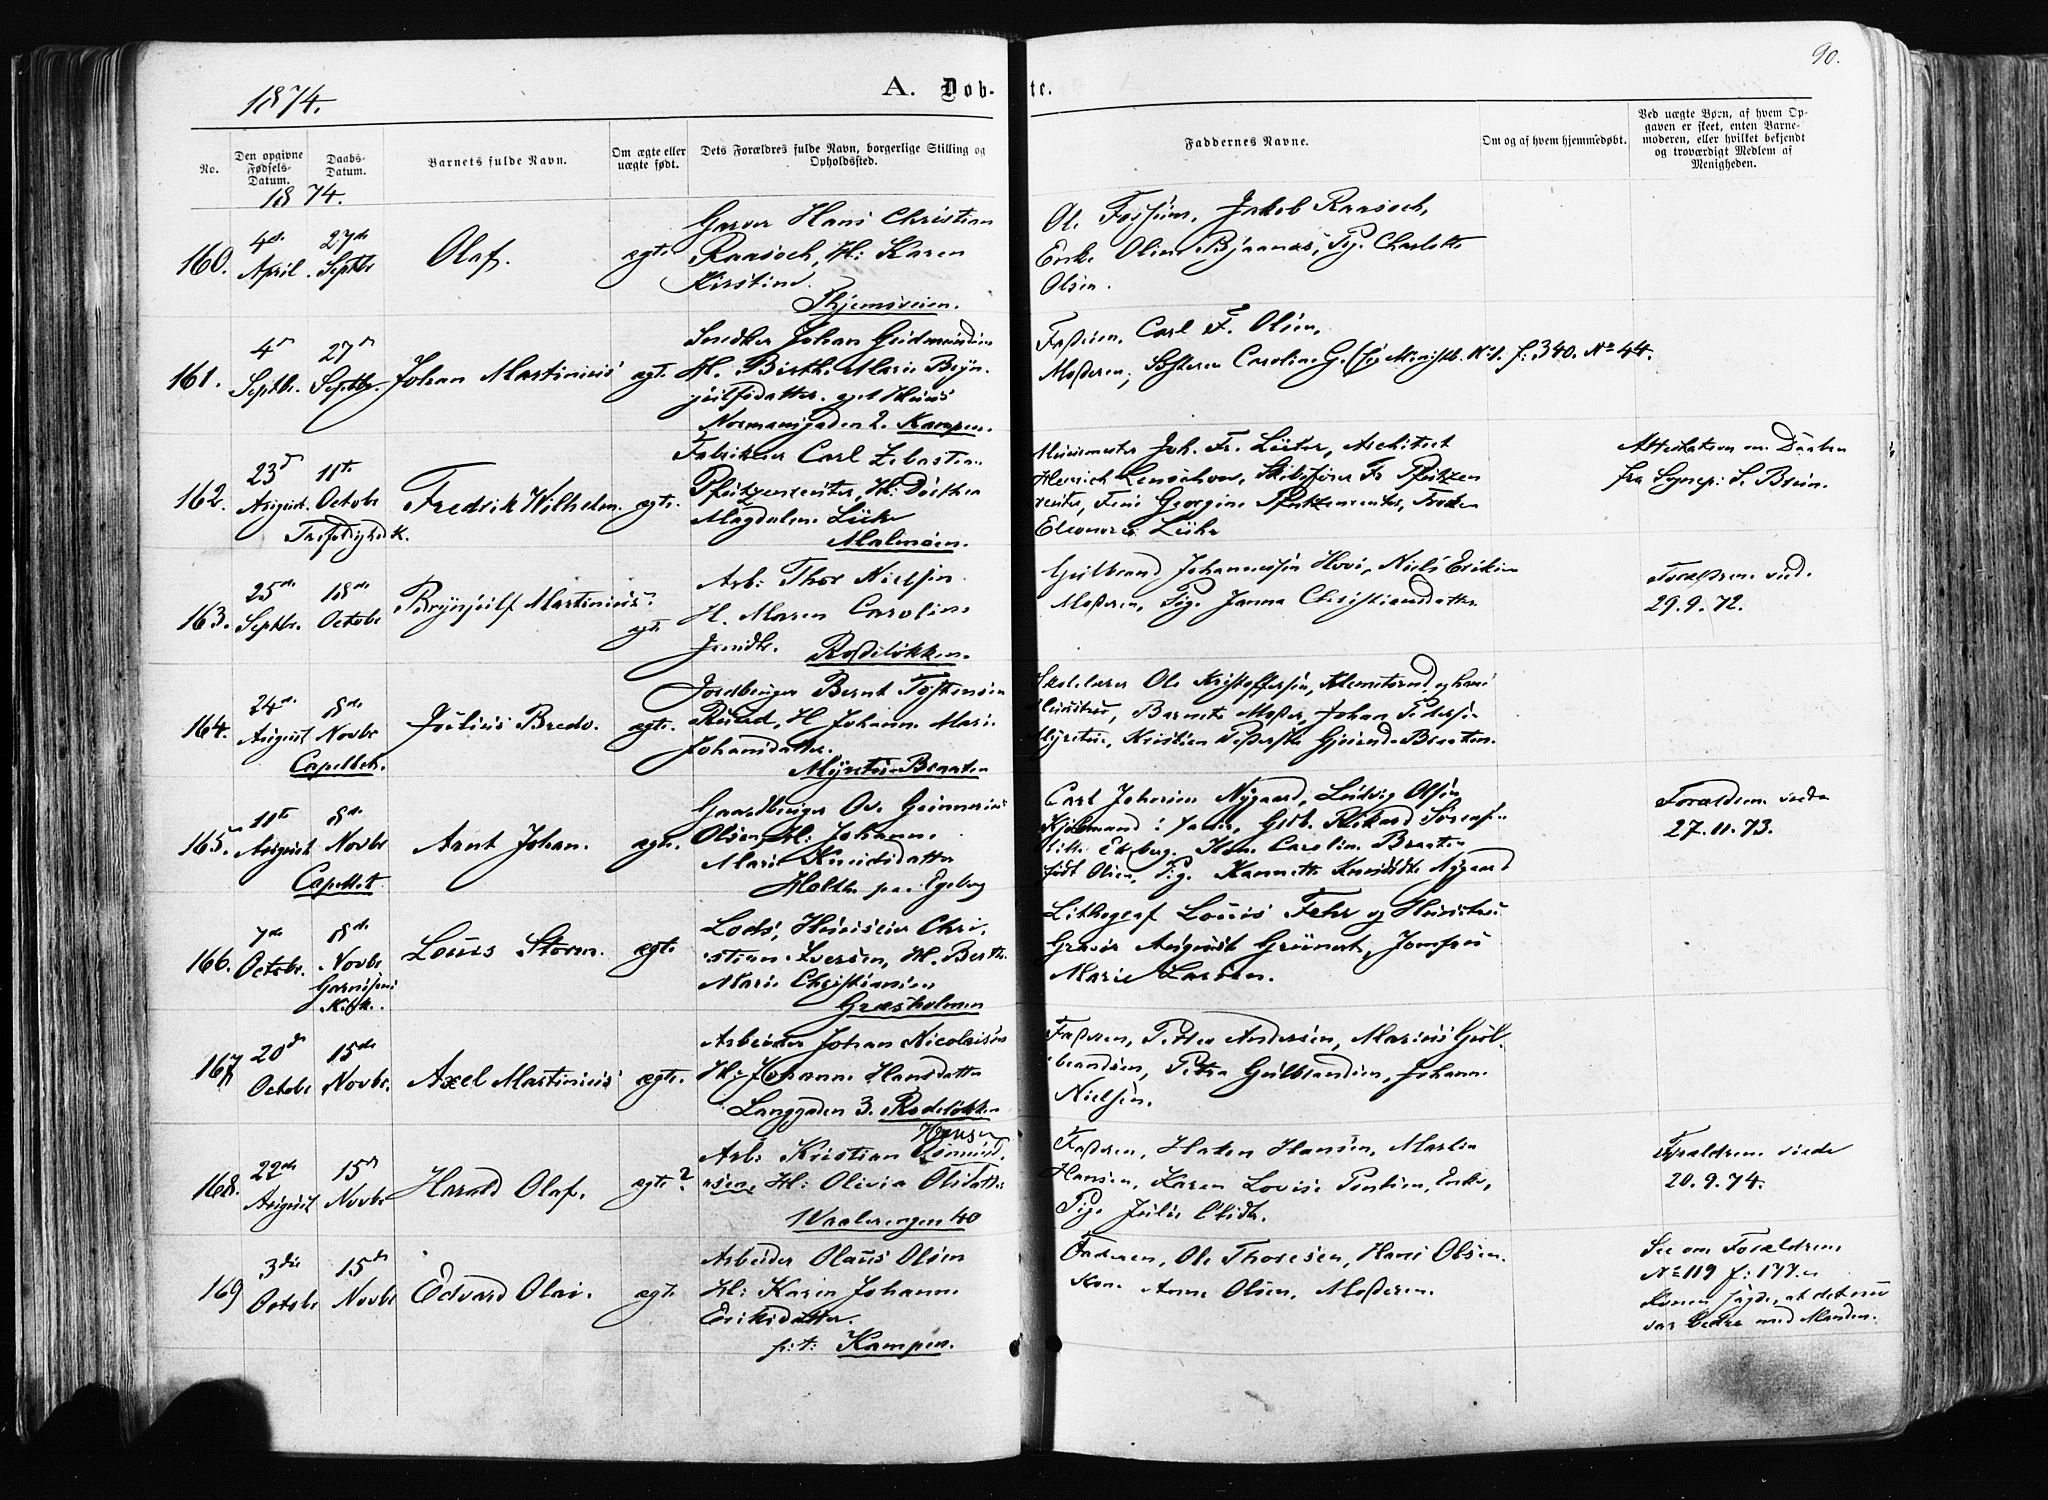 90.
1874.
A. Døb- te.
No.
Den opgivne Fødsels-Datum.
Daabs-Datum.
Barnets fulde Navn.
Om ægte eller uægte født.
Dets Forældres fulde Navn, borgerlige Stilling og Opholdssted.
Faddernes Navne.
Om og af hvem hjemmedøbt.
Ved uægte Børn, af hvem Opgaven er skeet, enten Barnemoderen, eller hvilket bekjendt og troværdigt Medlem af Menigheden.
1874.
160. 4de April. 27de Septbr Olaf. ægte
Garver Hans Christian
Raasoch, H: Karen
Kirstine.
Ole Fossum, Jakob Raasoch,
Enke Oline Bjaanæs, Pig. Charlotte
Olsen.
161. 4de Septbr. 27de Septbr. Johan Martinius ægte
Snedker Johan Gudmundsen
H. Birthe Marie Bryn-
julfsdatter
Normansgaden 2. Kampen.
Faderen, Carl F. Olsen,
Moderen, Søsteren Caroline G. f. 340. No 44.
162. 23de August. 11te Octobr Trefoldighedsk. Fredrik Wilhelm. ægte.
Fabrikeier Carl Sebastian
Pfützenreuter, H: Dorthea
Magdalene Lühr
Malmøen.
Joh. Fr. Lühr, Architect
Henrich
Georgine Pfützenreuter, Frøken
Eleonora Lühr
Attestation om Daaben
fra Sognepr: S. Bruun.
163. 25de Septbr. 18de Octobr Brynjulf Martinius. ægte
Arb: Thor Nielsen
H. Maren Caroline
Rodeløkken.
Gulbrand Johannessen Hovi, Niels Eriksen
Moderen, Pige Janna Christiansdatter
Forældrene viede
29.9.72.
164. 24de August 8de Novbr Capellet. Julius Bredo. ægte.
Jordbruger Bernt Tostensen
Rustad, H Johanne Marie
Johansdatter.
Myrstuen Braaten
Skolelærer Ole Kristoffersen, Klemetsrud, og hans
Hustru, Barnets Moder, Johan Pedersen
Myrstuen, Kristian Braaten.
165. 11te August 8de Novbr Capellet Arnt Johan. ægte.
Gaardbruger Ove Gunnerius
Olsen, H: Johanne
Marie Knudsdatter
Holte paa Egeberg
Carl Johnsen Nygaard, Ludvig Olsen
Rikard
Ekeberg. Kone Caroline Braaten
født Olsen, Pige Nygaard
Forældrene viede
27.11.73.
166. 7de Octobr. 8de Novbr Garnisons Kirk. Louis Storm. ægte
Lods, Huuseier Chri-
stian Iversen, H. Berthe
Marie Christiansen
Græsholmen
Lithograf Louis Fehr og Hustru
Gravør August Grünert, Jomfru
Marie Larsen.
167 20de Octobr 15de Novbr. Axel Martinius ægte.
Arbeider Johan Nicolaisen
H: Johanne Hansdatter
Langgaden 3. Rodeløkken
Faderen, Petter Andersen, Marius Gul-
brandsen, Petra Gulbrandsen, Johanne
Nielsen.
168. 22de August 15de Novbr Harald Olaf. ægte?
Hansen
Arb: Kristian Osmund-
sen, H: Olivia Olsdatter
Waalerengen 40
Faderen, Haken Hansen, Martin
Hansen, Karen Lovise Poulsen, Enke,
Pige Julie
Forældrene viede
20.9.74.
169 3die Octobr 15de Novbr Edvard Olai. ægte
Arbeider Olaus Olsen
H: Karen Johanne
Eriksdatter.
p:t: Kampen.
Faderen, Ole Thoresen, Hans Olsen.
Kone Anne Olsen, Moderen.
See om Forældrene
No 119 f: 177.
Konen sagde, at det nu
var bedre med Manden.